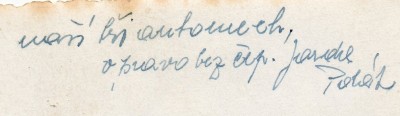 naší tři automech.
vpravo bez čep. Jarda
Polák